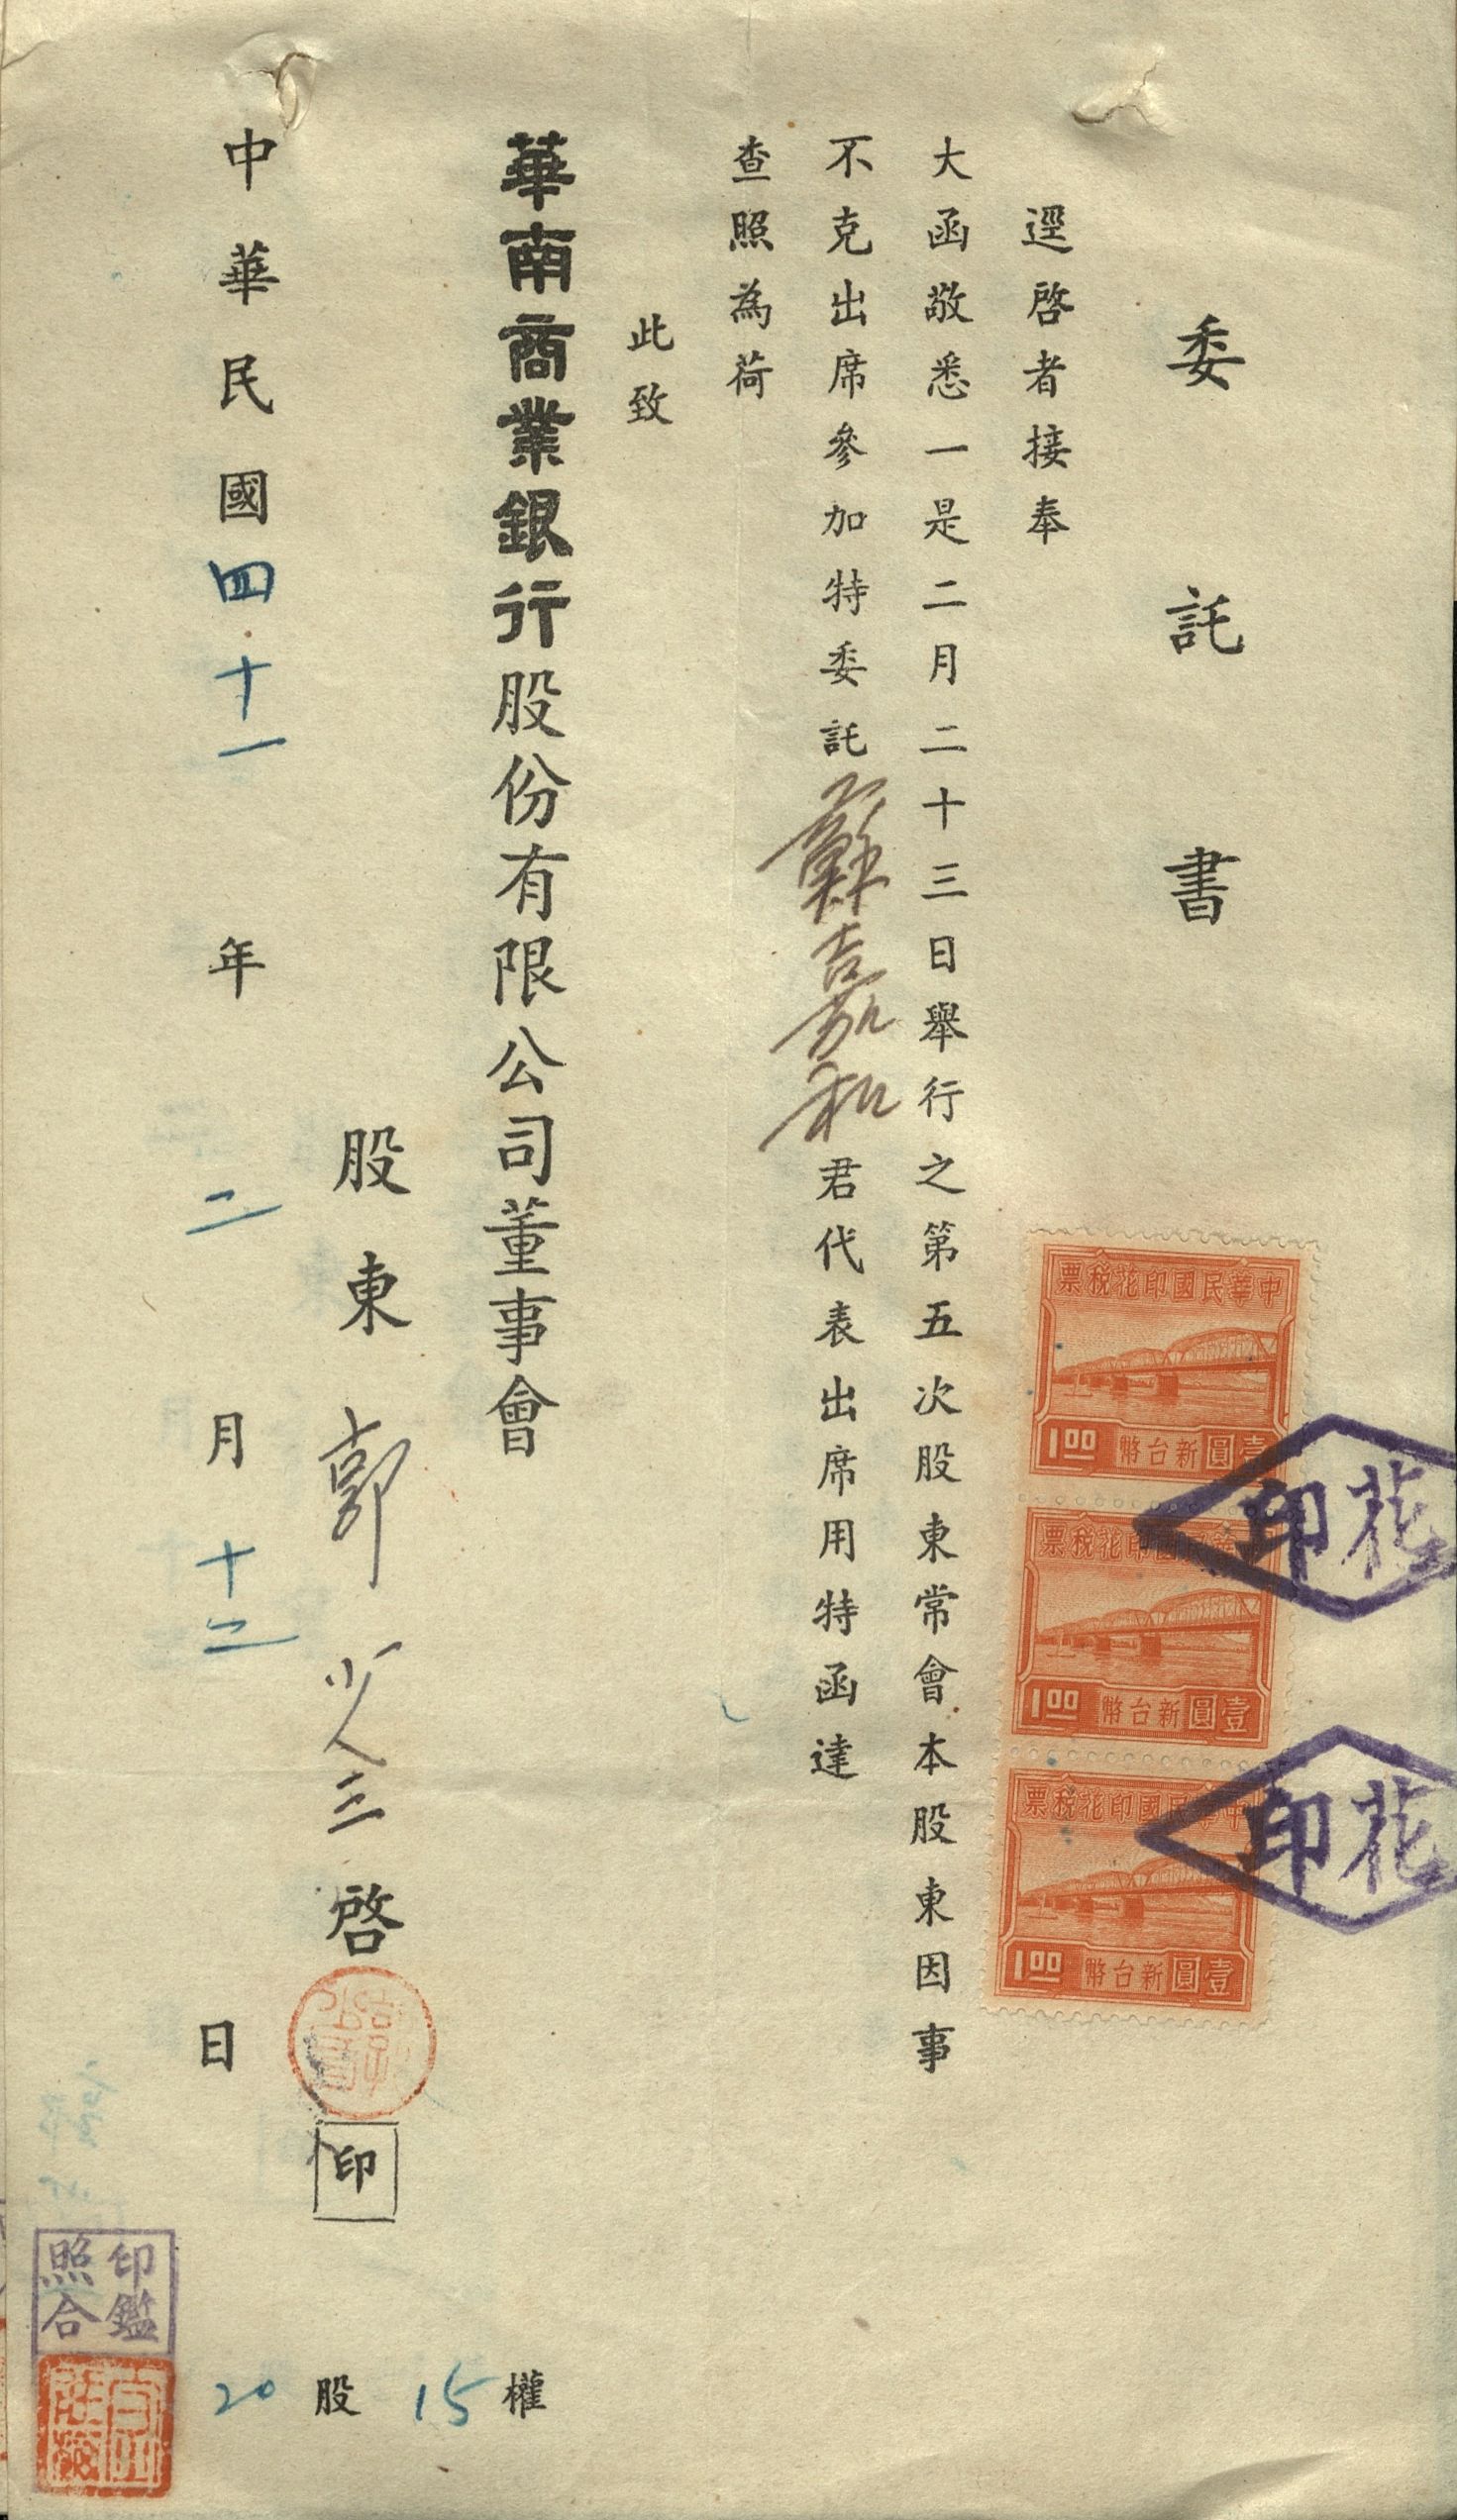 委託書
逕啓者接奉
大函敬悉一是二月二十三日舉行之第五次股東常會本股東因事
不克出席參加特委託蘇嘉和君代表出席用特函達
查照為荷
此致
華南商業銀行股份有限公司董事會
股東郭火三啓
印
中華民國四十一年二月十二日
權15股20
中華民國印花稅票
壹圓新台幣1.00
國印花稅票
壹圓新台幣1.00
中華民國印花稅票
壹圓新台幣1.00
花印
花印
印鑑
照合